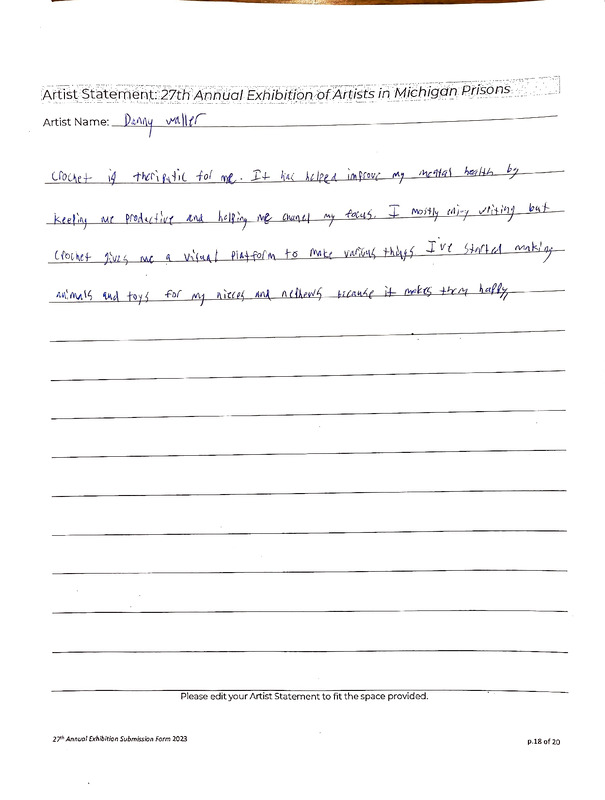 Artist Statement: 27th Annual Exhibition of Artists in Michigan Prisons
Artist Name: Danny Waller
Crochet is theripatic for me. It has helped improve my mental health by
keeping me productive and helping me chanel my focus. I mostly enjoy writing but
crochet gives me a visual platform to make various things I've started making
animals and toys for my nieces and nethews because it makes them happy
Please edit your Artist Statement to fit the space provided.
27th Annual Exhibition Submission Form 2023
p.18 of 20